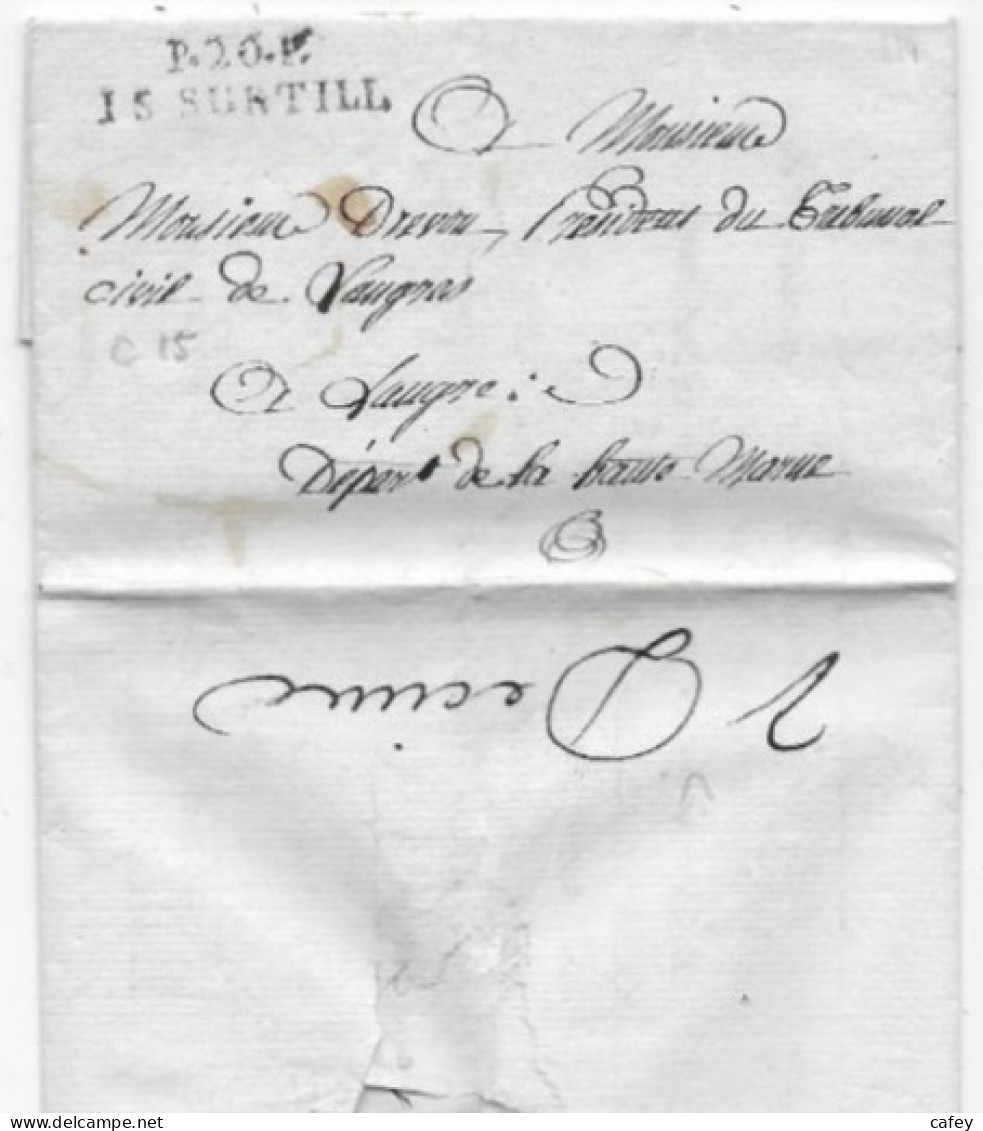 P.20.P.
IS SURTILL
A Monsieur
Monsieur Drevon, Président du Tribunal
civil de Langres
C 15
A Langres
Départ de la haute Marne
2 Decime
cafey